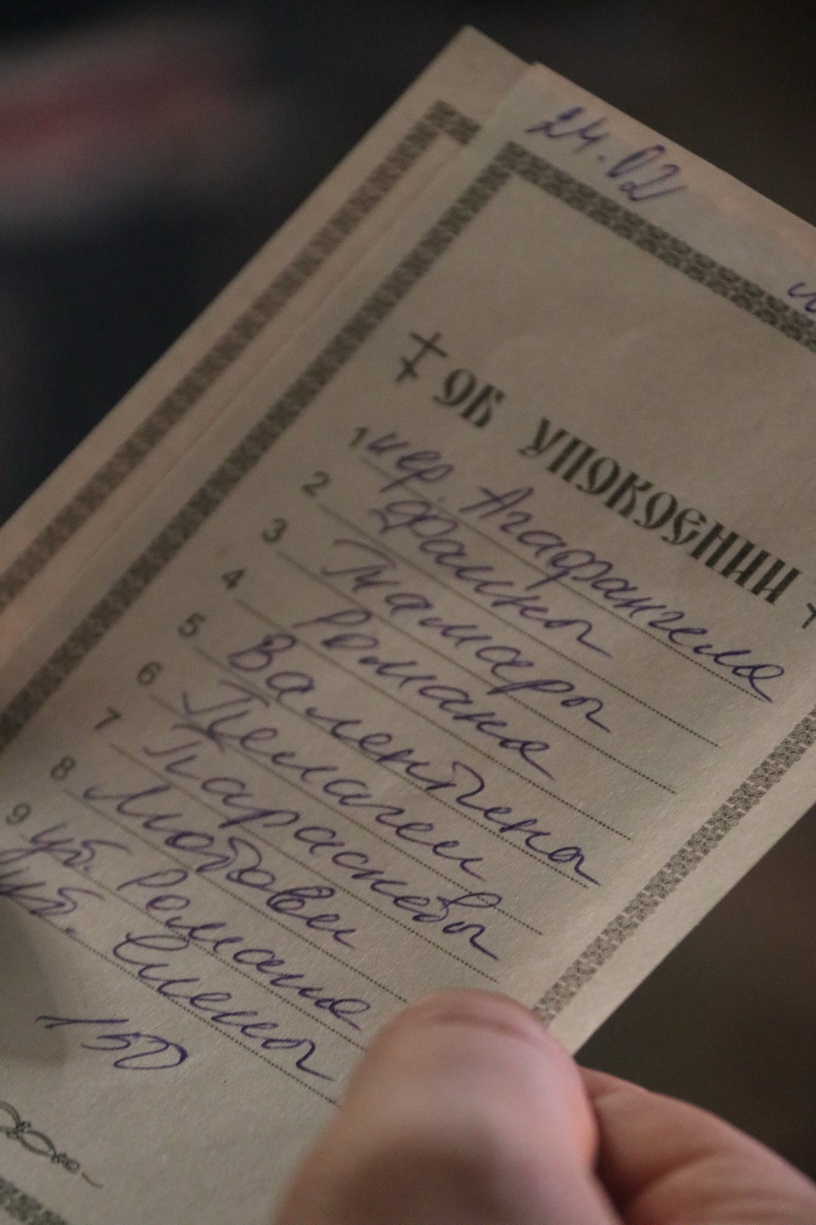 24.02
ОБ УПОКОЕНИИ
1 иер. Агафангела
2 Фаины
3 Тамары
4 Романа
5 Валентины
6 Пелагеи
7 Параскевы
8 Любови
9 уб. Романа
уб. Елены
150